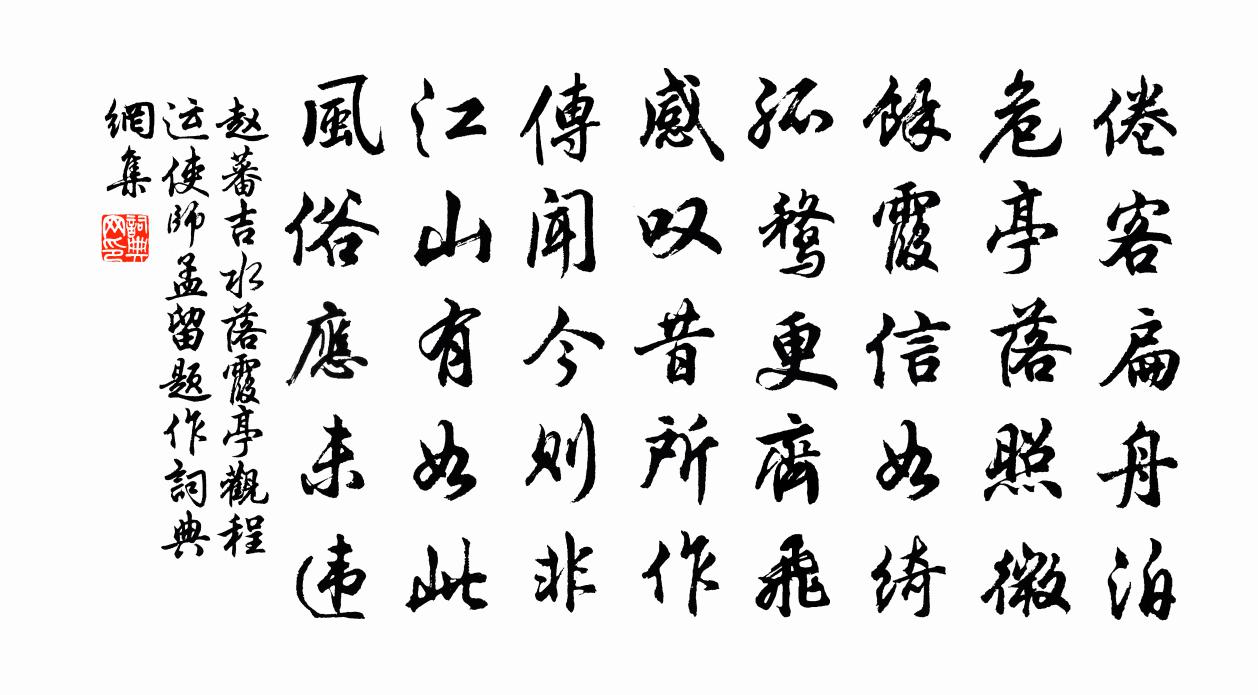 倦客扁舟泊
危亭落照微
餘霞信如綺
孤鶩更齊飛
感叹昔所作
傳闻今则非
江山有如此
風俗應未违
赵蕃吉水落霞亭觀程
运使師孟留题作詞典
網集
詞典
网印